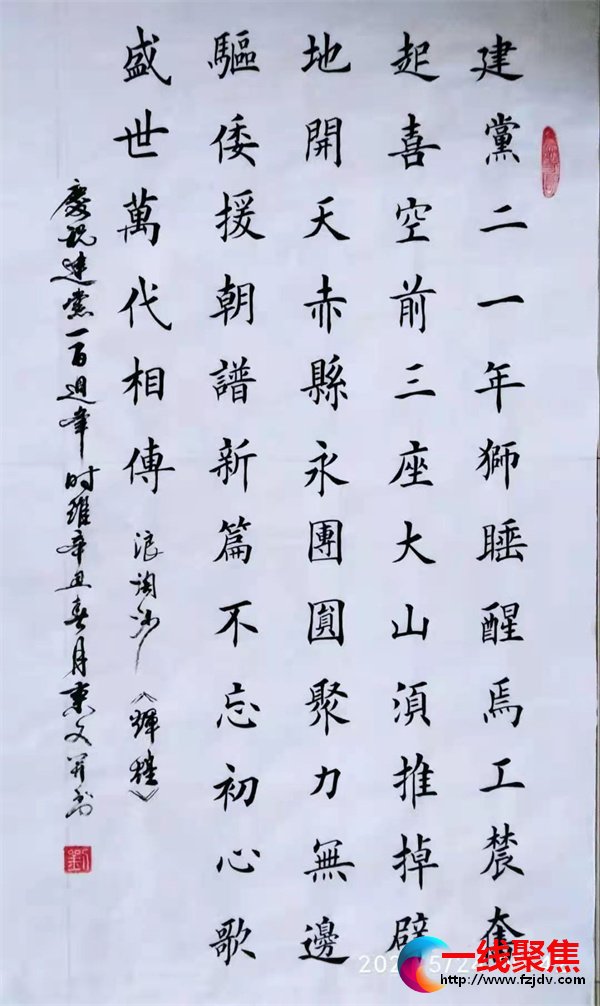 建黨二一年獅睡醒焉工農奮
起喜空前三座大山須推掉闢
地開天赤縣永團圓聚力無邊
驅倭援朝譜新篇不忘初心歌
盛世萬代相傳
浪淘沙《輝煌》
慶祝建黨一百週年時維辛丑春月東文并书
劉
一线聚焦
http://www.fzjdv.com